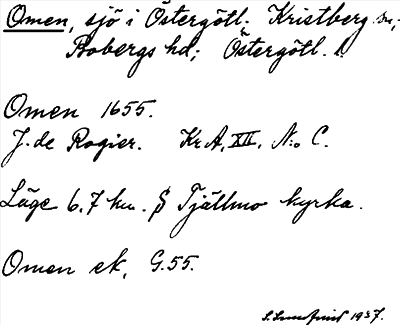 Omen, sjö i Östergötl. Kristberg sn;
Bobergs hd; Östergötl. l.
Omen 1655.
J. de Rogier. Kr A, XII, N:o C.
Läge 6,7 km. S Tjällmo kyrka.
Omen ek, G.55.
S. Lundqvist 1937.